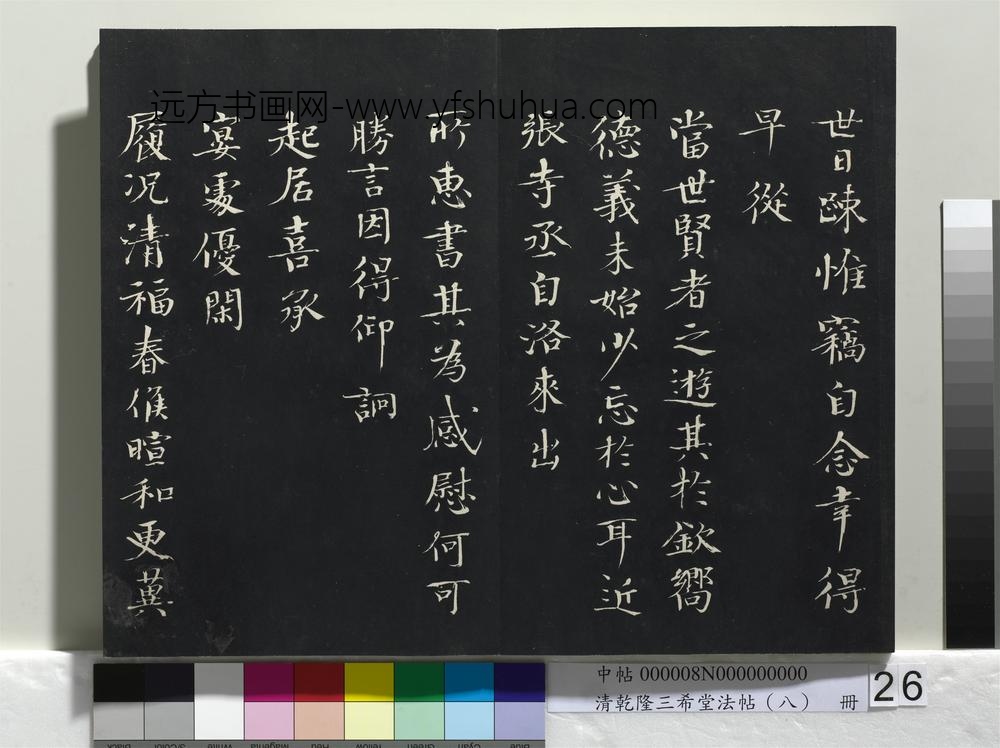 世日疎惟竊自念幸得
早從
當世賢者之遊其於欽嚮
德義未始少忘於心耳近
張寺丞自洛來出
所惠書其為感慰何可
勝言因得仰詗
起居喜承
宴處優閑
履況清福春候暄和更蕺
远方书画网-www.yfshuhua.com
中帖 000008N000000000
清乾隆三希堂法帖(八) 冊
26